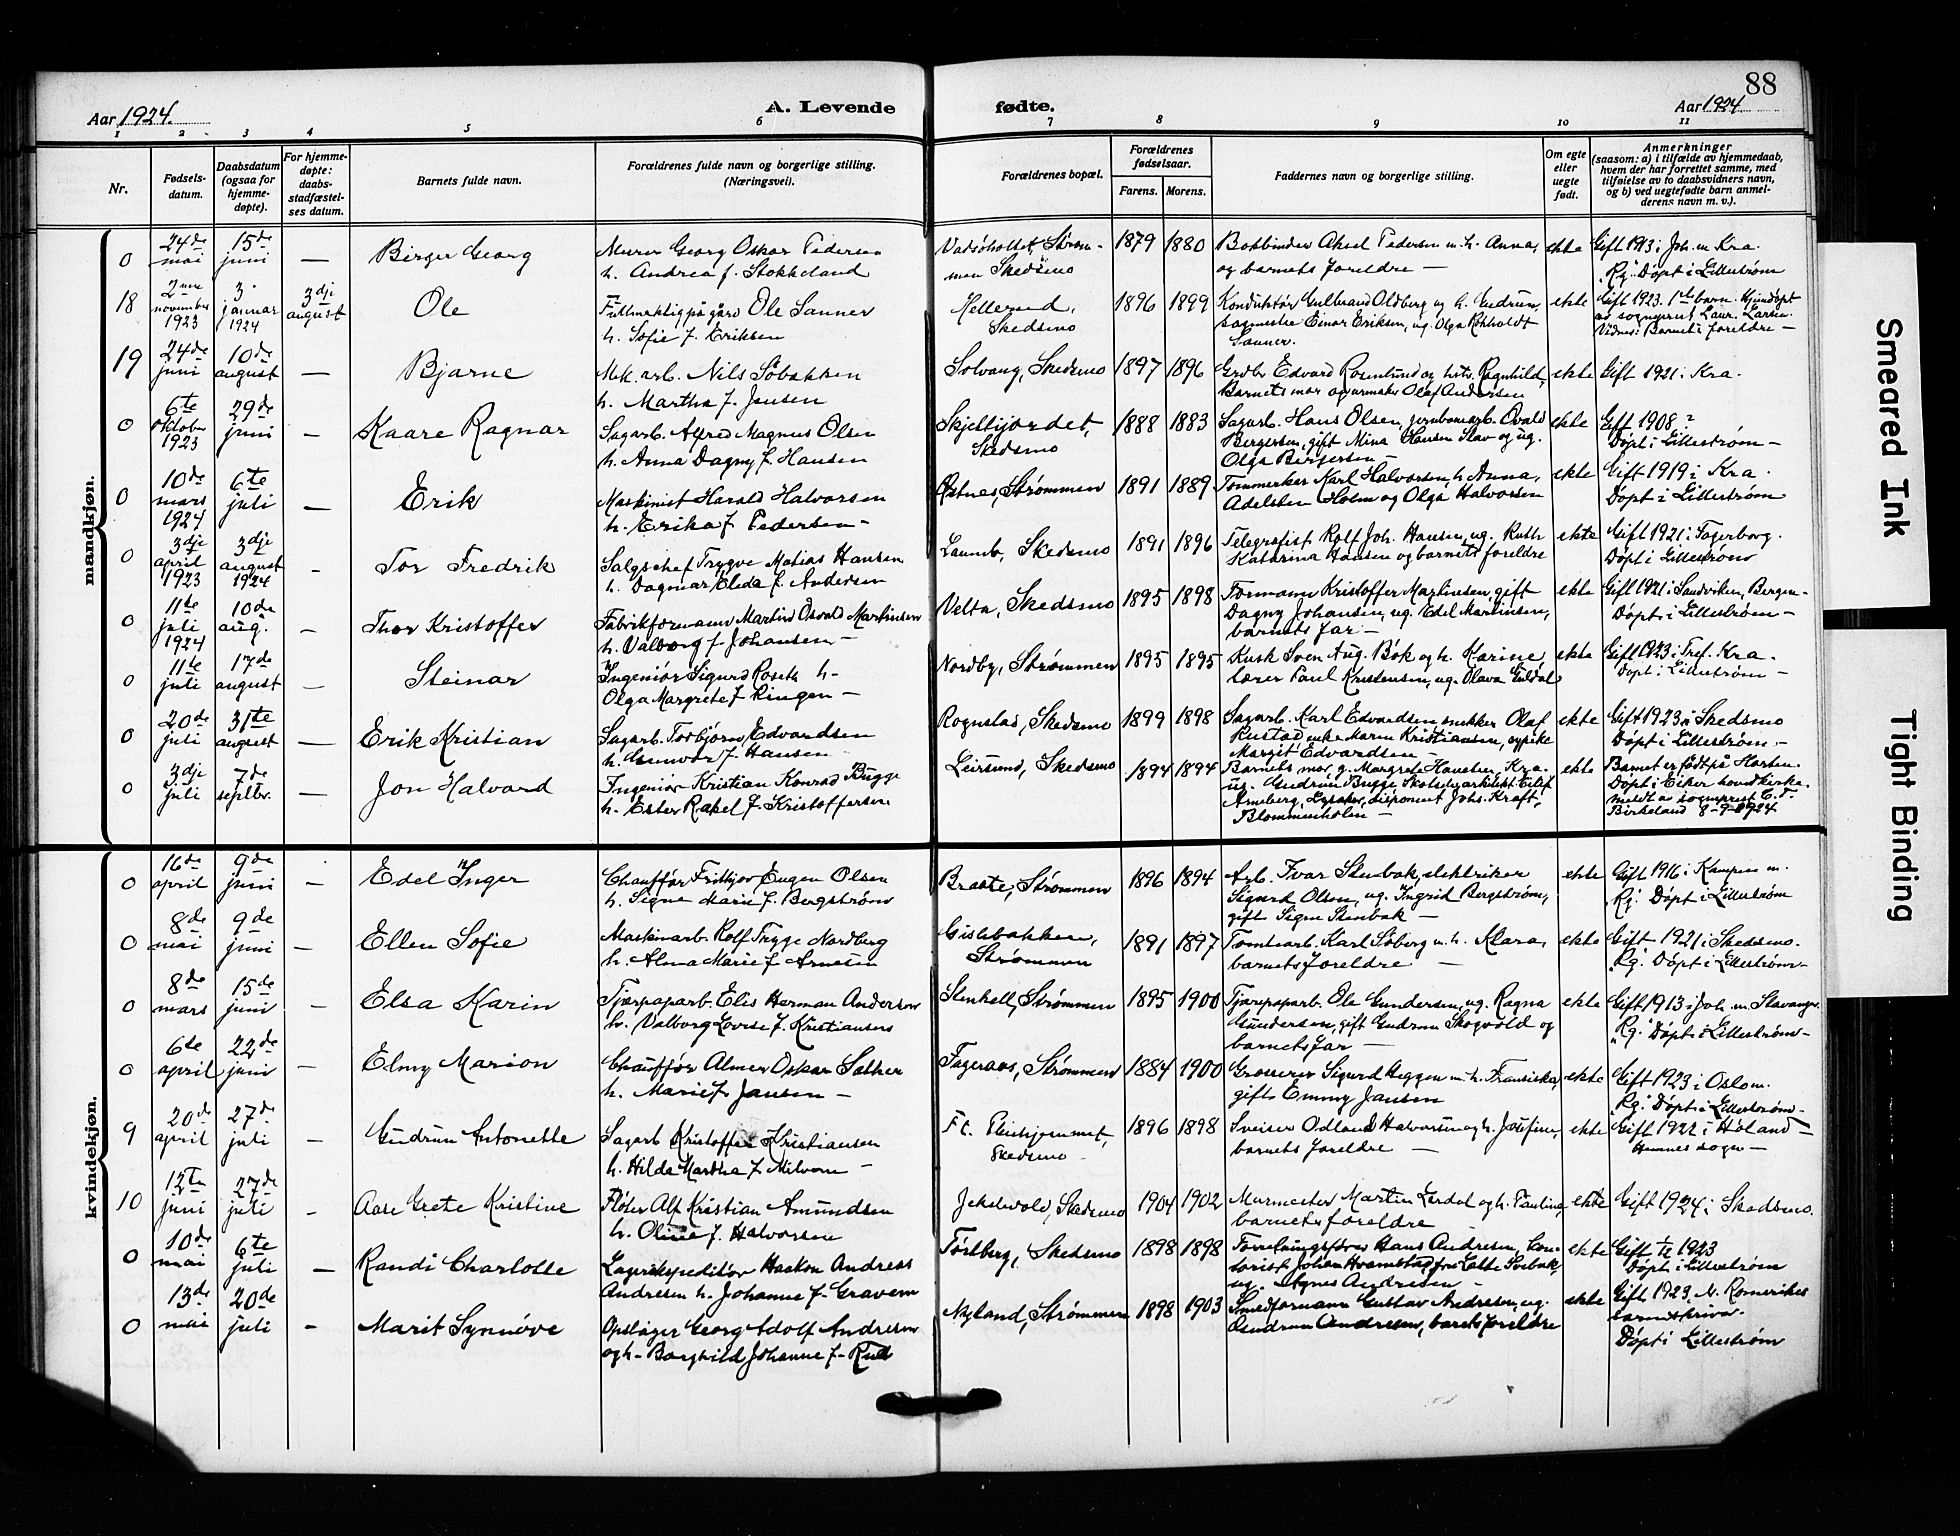 88
Aar 1924.
A. Levende
fødte.
Aar 1924
1 2 3 4 5 6 7 8 9 10 11
Nr.
Fødsels-
datum.
Daabsdatum
(ogsaa for
hjemme-
døpte).
For hjemme-
døpte:
daabs-
stadfæstel-
ses datum.
Barnets fulde navn.
Forældrenes fulde navn og borgerlige stilling.
(Næringsvei).
Forældrenes bopæl.
Forældrenes
fødselsaar.
Farens. Morens.
Faddernes navn og borgerlige stilling.
Om egte
eller
uegte
født.
Anmerkninger
(saasom: a) i tilfælde av hjemmedaab,
hvem der har forrettet samme, med
tilføielse av to daabsvidners navn,
og b) ved uegtefødte barn anmel-
derens navn m. v.).
mandkjøn.
0
24de
mai
15de
juni
—
Birger Georg
Murer Georg Oskar Pedersen
h. Andrea f. Stokkeland
Skedsmo
1879 1880
Bokbinder Aksel Pedersen m. h. Anna,
og barnets foreldre —
ekte
Gift 1913 i Joh. m. Kra.
"Rg." Døpt i Lillestrøm
18
2nen
november
1923
3.
januar
1924
3dje
august
Ole
Fullmektig på gård Ole Sanner
h. Sofie f. Eriksen
Hellerud,
Skedsmo
1896 1899
Konduktør Gulbrand Oldberg og h. Gudrun,
sagmester Einar Eriksen, ug. Olga
Sanner.
ekte
Gift 1923. 1ste barn. Hjemdøpt
av sogneprest Laur. Larsen.
Vidner: Barnets foreldre —
19
24de
juni
10de
august
—
Bjarne
Mek. arb. Nils Søbakken
h. Martha f. Jensen
Solvang, Skedsmo
1897 1896
Grdbr Edvard Rosenlund og hstr. Ragnhild,
Barnets mor og urmaker Olaf Andersen
ekte
Gift 1921 i Kra.
0
6te
oktober
1923
29de
juni
—
Kaare Ragnar
Sagarb. Alfred Magnus Olsen
h. Anna Dagny f. Hansen
Skjettjordet,
Skedsmo
1888 1883
Sagarb. Hans Olsen, jernbanearb. Osvald
Bergersen, gift Mina Hansen Slav og ug.
Olga Birgersen —
ekte
Gift 1908 ?
Døpt i Lillestrøm —
0
10de
mars
1924
6te
juli
—
Erik
Maskinist Harald Halvorsen
h. Erika f. Pedersen —
Østnes, Strømmen
1891 1889
Tømmerkar Karl Halvorsen, h. Anna,
Adelsten Holm og Olga Halvorsen
ekte
Gift 1919 i Kra.
Døpt i Lillestrøm
0
3dje
april
1923
3dje
august
1924
—
Tor Fredrik
Salgschef Trygve Matias Hansen
h. Dagmar Elida f. Andersen
Skedsmo
1891 1896
Telegrafist Rolf Joh. Hansen, ug. Ruth
Katharina Hansen og barnets foreldre
ekte
Gift 1921 i Fagerborg.
Døpt i Lillestrøm
0
11te
juli
1924
10de
aug.
—
Thor Kristoffer
Fabrikformann Martin Osvald Martinsen
h. Valborg f. Johansen —
Velta, Skedsmo
1895 1898
Formann Kristoffer Martinsen, gift
Dagny Johansen, ug. Edel Martinsen,
barnets far —
ekte
Gift 1921 i Sandviken, Bergen —
Døpt i Lillestrøm —
0
11te
juli
17de
august
—
Steinar
Ingeniør Sigurd Roseth h.
Olga Margrete f. Ringen —
Nordby, Strømmen
1895 1895
Kusk Sven Aug. Bök og h. Karine,
lærer Paul Kristensen, ug. Olava Guldal
ekte
Gift 1923 i Tref. Kra.
Døpt i Lillestrøm —
0
20de
juli
31te
august
—
Erik Kristian
Sagarb. Torbjørn Edvardsen
h. Gunvor f. Hansen
Rognstad, Skedsmo
1899 1898
Sagarb. Karl Edvardsen, snekker Olaf
Rustad, enke Maren Kristiansen, sypike
Margit Edvardsen —
ekte
Gift 1923 i Skedsmo
Døpt i Lillestrøm —
0
3dje
juli
7de
septbr.
—
Jon Halvard
Ingeniør Kristian Konrad Bugge
h. Ester Rakel f. Kristoffersen
Leirsund, Skedsmo
1894 1894
Barnets mor, g. Margrete Kra.
ug. Gudrun Bugge arkitekt Eilif
Arneberg, Lysaker, disponent Johs. Kraft,
Blommenholm —
ekte
Barnet er født på Horten.
Døpt i Eiker hovedkirke.
meldt av sogneprest C. F.
Birkeland 8-9-1924
kvindekjøn.
0
16de
april
9de
juni
—
Edel Inger
Chauffør Fritthjov Eugen Olsen
h. Signe Marie f. Bergstrøm
Braate, Strømmen
1896 1894
Arb. Ivar Stenbak, elektriker
Sigurd Olsen, ug. Ingrid Bergstrøm,
gift Signe Stenbak —
ekte
Gift 1916 i Kampen m.
"Rg." Døpt i Lillestrøm
0
8de
mai
9de
juni
—
Ellen Sofie
Maskinarb. Rolf Tryge Nordberg
h. Alma Marie f. Arnesen
Gislebakken,
Strømmen
1891 1897
Tomtearb. Karl Søberg m. h. Klara,
barnets foreldre —
ekte
Gift 1921 i Skedsmo.
"Rg." Døpt i Lillestrøm —
0
8de
mars
15de
juni
—
Elsa Karin
Tjærpaparb. Elis Herman Andersen
h. Valborg Lovise f. Kristiansen
Stenhell, Strømmen
1895 1900
Tjærepaparb. Ole Gundersen, ug. Ragna
Gundersen, gift Gudrun Skogvold og
barnets far —
ekte
Gift 1913 i Joh. m. Stavanger
"Rg." Døpt i Lillestrøm —
0
6te
april
22de
juni
—
Elmy Marion
Chauffør Almer Oskar Sæther
h. Marie f. Jansen —
Fageraas, Strømmen
1884 1900
Grosserer Sigurd Heggen m. h. Fransiska,
gift Emmy Jansen
ekte
Gift 1923 i Oslo m.
"Rg." Døpt i Lillestrøm —
9
20de
april
27de
juli
—
Gudrun Antonette
Sagarb. Kristoffer Kristiansen
h. Hilda Martha f. Milvom —
Ft. Pleiehjemmet,
Skedsmo —
1896 1898
Sveiser Odland Halvorsen og h. Josefine,
barnets foreldre —
ekte
Gift 1922 i Høland —
Hemnes sogn —
10
12te
juni
27de
juli
—
Aase Grete Kristine
Fløter Alf Kristian Amundsen
h. Oline f. Halvorsen
Jekslevold, Skedsmo
1904 1902
Murmester Martin Lerdal og h. Pauline,
barnets foreldre —
ekte
Gift 1924 i Skedsmo.
0
10de
mai
6te
juli
—
Randi Charlotte
Lagerekspeditør Haakon Andreas
Andresen h. Johanne f. Gravem
Tærtberg, Skedsmo
1898 1898
Forretningsfører Hans Andresen, kon-
torist Johan fru Lotte
ug. Agnes Andresen —
ekte
Gift 1923
Døpt i Lillestrøm
0
13de
mai
20de
juli
—
Marit Synnøve
Opslager Georg Adolf Andresen
og h. Borghild Johanne f. Rud
Nyland, Strømmen
1898 1903
Smedformann Gustav Andresen, ug.
Gudrun Andresen, barnets foreldre
ekte
Gift 1923. N. Romerikes
sorenskriver.
Døpt i Lillestrøm
Smeared Ink
Tight Binding